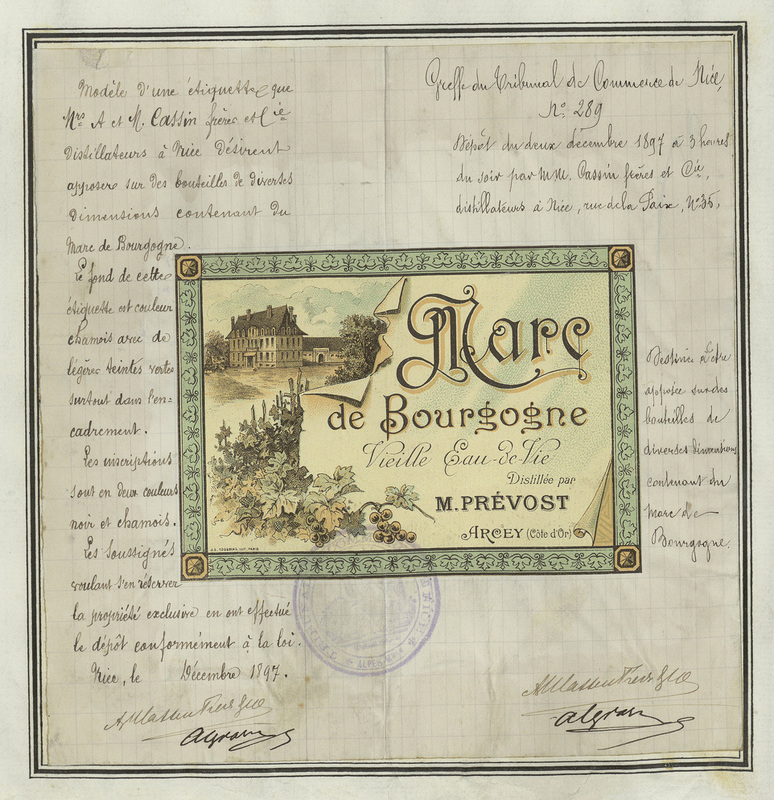 Modèle d'une étiquette que
Mrs A et M. Cassin frères et Cie
Distillateurs à Nice désirent
apposer sur des bouteilles de diverses
dimensions contenant du
Marc de Bourgogne.
Le fond de cette
étiquette est couleur
chamois avec de
légères teintes vertes
surtout dans l'en-
cadrement.
Les inscriptions
sont en deux couleurs
noir et chamois.
Les soussignés
voulant s'en réserver
la propriété exclusive en ont effectué
le dépôt conformément à la loi.
Nice, le Décembre 1897.
Greffe du Tribunal de Commerce de Nice,
No. 289
Dépôt du deux décembre 1897 à 3 heures
du soir par MM. Cassin frères et Cie,
distillateurs à Nice, rue de la Paix, No 35,
Marc
de Bourgogne
Vieille Eau-de-Vie
Distillée par
M. PRÉVOST
ARCEY (Côte d'Or)
Destinée à être
apposée sur des
bouteilles de
diverses dimensions
contenant du
Marc de
Bourgogne.